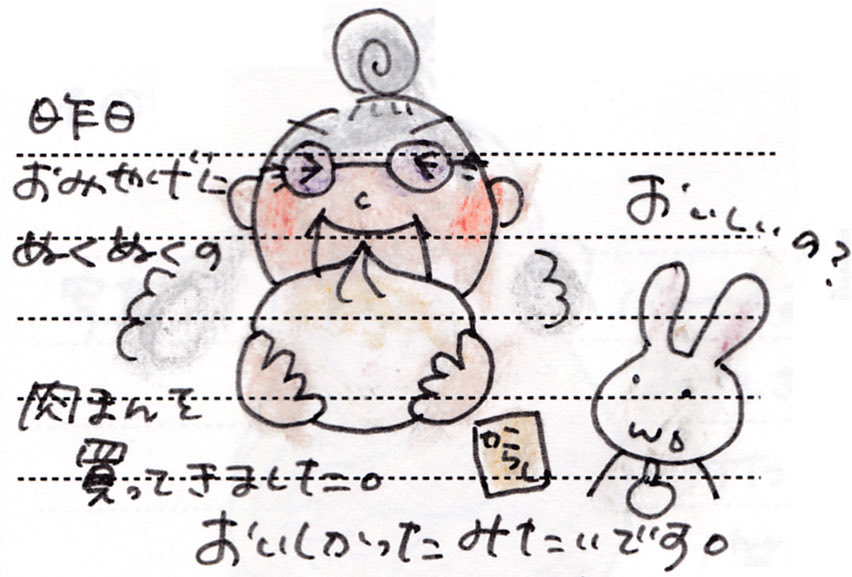 昨日
おみやげに
ぬくぬくの
肉まんを
買ってきました。
おいしかったみたいです。
おいしいの?
からし